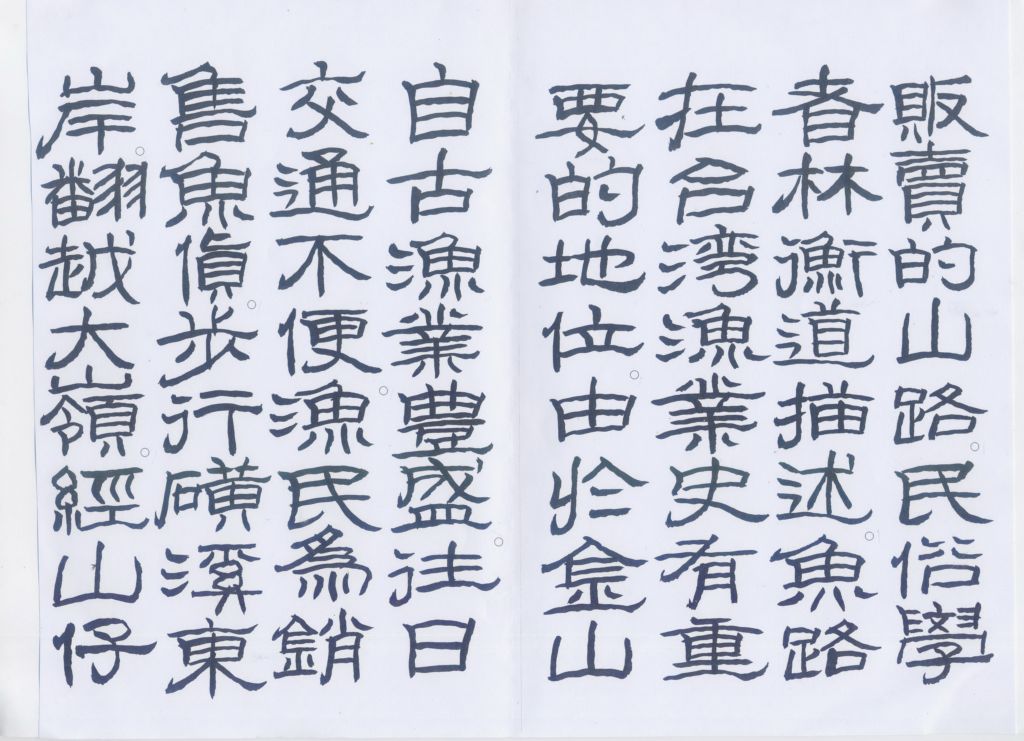 販賣的山路。民俗學
者林衡道描述。魚路
在台湾漁業史有重
要的地位。由於金山
自古漁業豊盛。往日
交通不便。漁民為銷
售魚貨。步行磺溪東
岸。翻越大嶺。經山仔